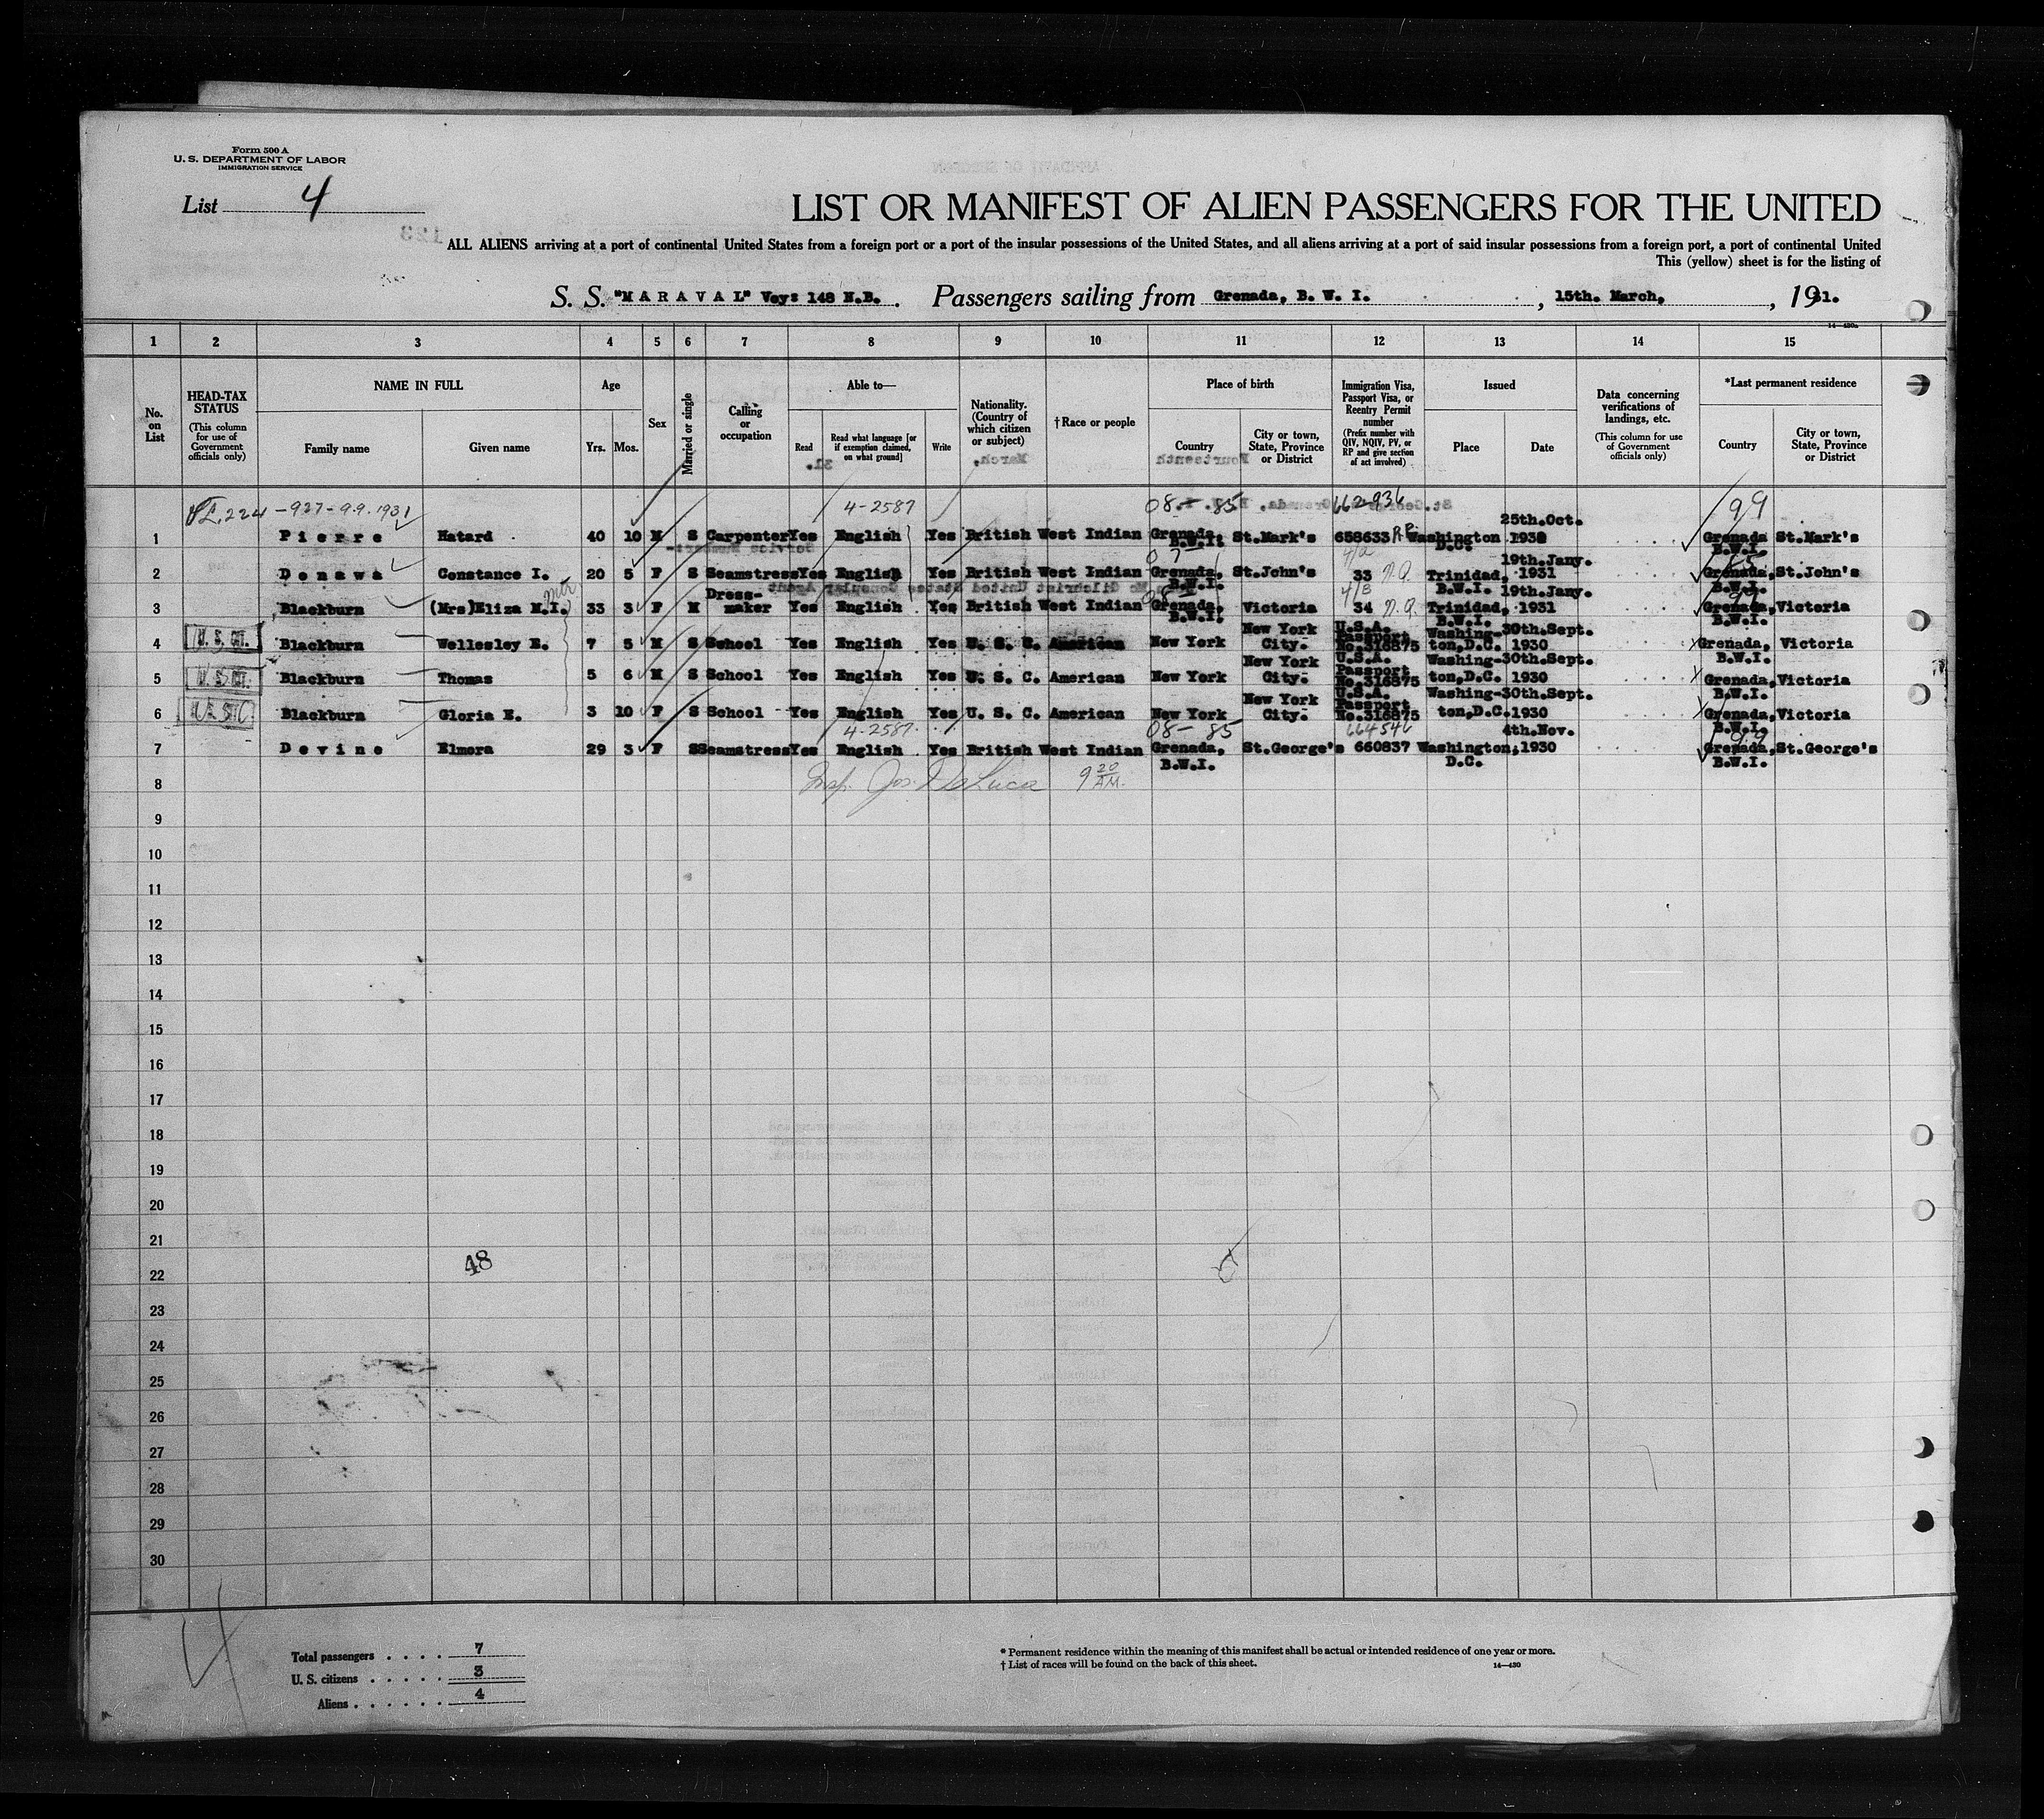 Form 500 A
U. S. DEPARTMENT OF LABOR
IMMIGRATION SERVICE
List 4
LIST OR MANIFEST OF ALIEN PASSENGERS FOR THE UNITED
ALL ALIENS arriving at a port of continental United States from a foreign port or a port of the insular possessions of the United States, and all aliens arriving at a port of said insular possessions from a foreign port, a port of continental United
This (yellow) sheet is for the listing of
S. S. "MARAVAL" Voy: 148 N.B. Passengers sailing from Grenada, B. W. I. , 15th. March, , 1931.
1 2 3 4 5 6 7 8 9 10 11 12 13 14 15
No. on List
HEAD-TAX STATUS (This column for use of Government officials only)
NAME IN FULL
Family name Given name
Age
Yrs. Mos.
Sex
Married or single
Calling or occupation
Able to—
Read
Read what language [or if exemption claimed, on what ground]
Write
Nationality. (Country of which citizen or subject)
†Race or people
Place of birth
Country
City or town, State, Province or District
Immigration Visa, Passport Visa, or Reentry Permit number (Prefix number with QIV, NQIV, PV, or RP and give section of act involved)
Issued
Place Date
Data concerning verifications of landings, etc. (This column for use of Government officials only)
*Last permanent residence
Country
City or town, State, Province or District
-927-9.9.1931 4-2587 08- 85 662-936 99
1 Pierre Hatard 40 10 M S Carpenter Yes English Yes British West Indian Grenada, B.W.I. St.Mark's 658633 Washington D.C. 25th.Oct. 1930 Grenada B.W.I. St.Mark's
2 Donawa Constance I. 20 5 F S Seamstress Yes English Yes British West Indian Grenada, B.W.I. St.John's 33 Trinidad, B.W.I. 19th.Jany. 1931 Grenada, B.W.I. St.John's
3 Blackburn (Mrs)Eliza M.I. 33 3 F M Dress-maker Yes English Yes British West Indian Grenada, B.W.I. Victoria 34 Trinidad, B.W.I. 19th.Jany. 1931 Grenada, B.W.I. Victoria
4 U. S. CIT. Blackburn Wellesley E. 7 5 M S School Yes English Yes U. S. C. American New York New York City. U.S.A. Passport No.316875 Washing-ton,D.C. 30th.Sept. 1930 Grenada, B.W.I. Victoria
5 U. S. CIT. Blackburn Thomas 5 6 M S School Yes English Yes U. S. C. American New York New York City. U.S.A. Passport No.316875 Washing-ton,D.C. 30th.Sept. 1930 Grenada, B.W.I. Victoria
6 Blackburn Gloria E. 3 10 F S School Yes English Yes U. S. C. American New York New York City. U.S.A. Passport No.316875 Washing-ton,D.C. 30th.Sept. 1930 Grenada, B.W.I. Victoria
4-2587 08- 85 664546 99
7 Devine Elmora 29 3 F S Seamstress Yes English Yes British West Indian Grenada, B.W.I. St.George's 660837 Washington, D.C. 4th.Nov. 1930 Grenada, B.W.I. St.George's
8 Insp. Jos. DeLuca 9 20 AM.
9
10
11
12
13
14
15
16
17
18
19
20
21
22
48
23
24
25
26
27
28
29
30
Total passengers . . . . 7
U. S. citizens . . . . . 3
Aliens . . . . . . 4
* Permanent residence within the meaning of this manifest shall be actual or intended residence of one year or more.
† List of races will be found on the back of this sheet.
14—430